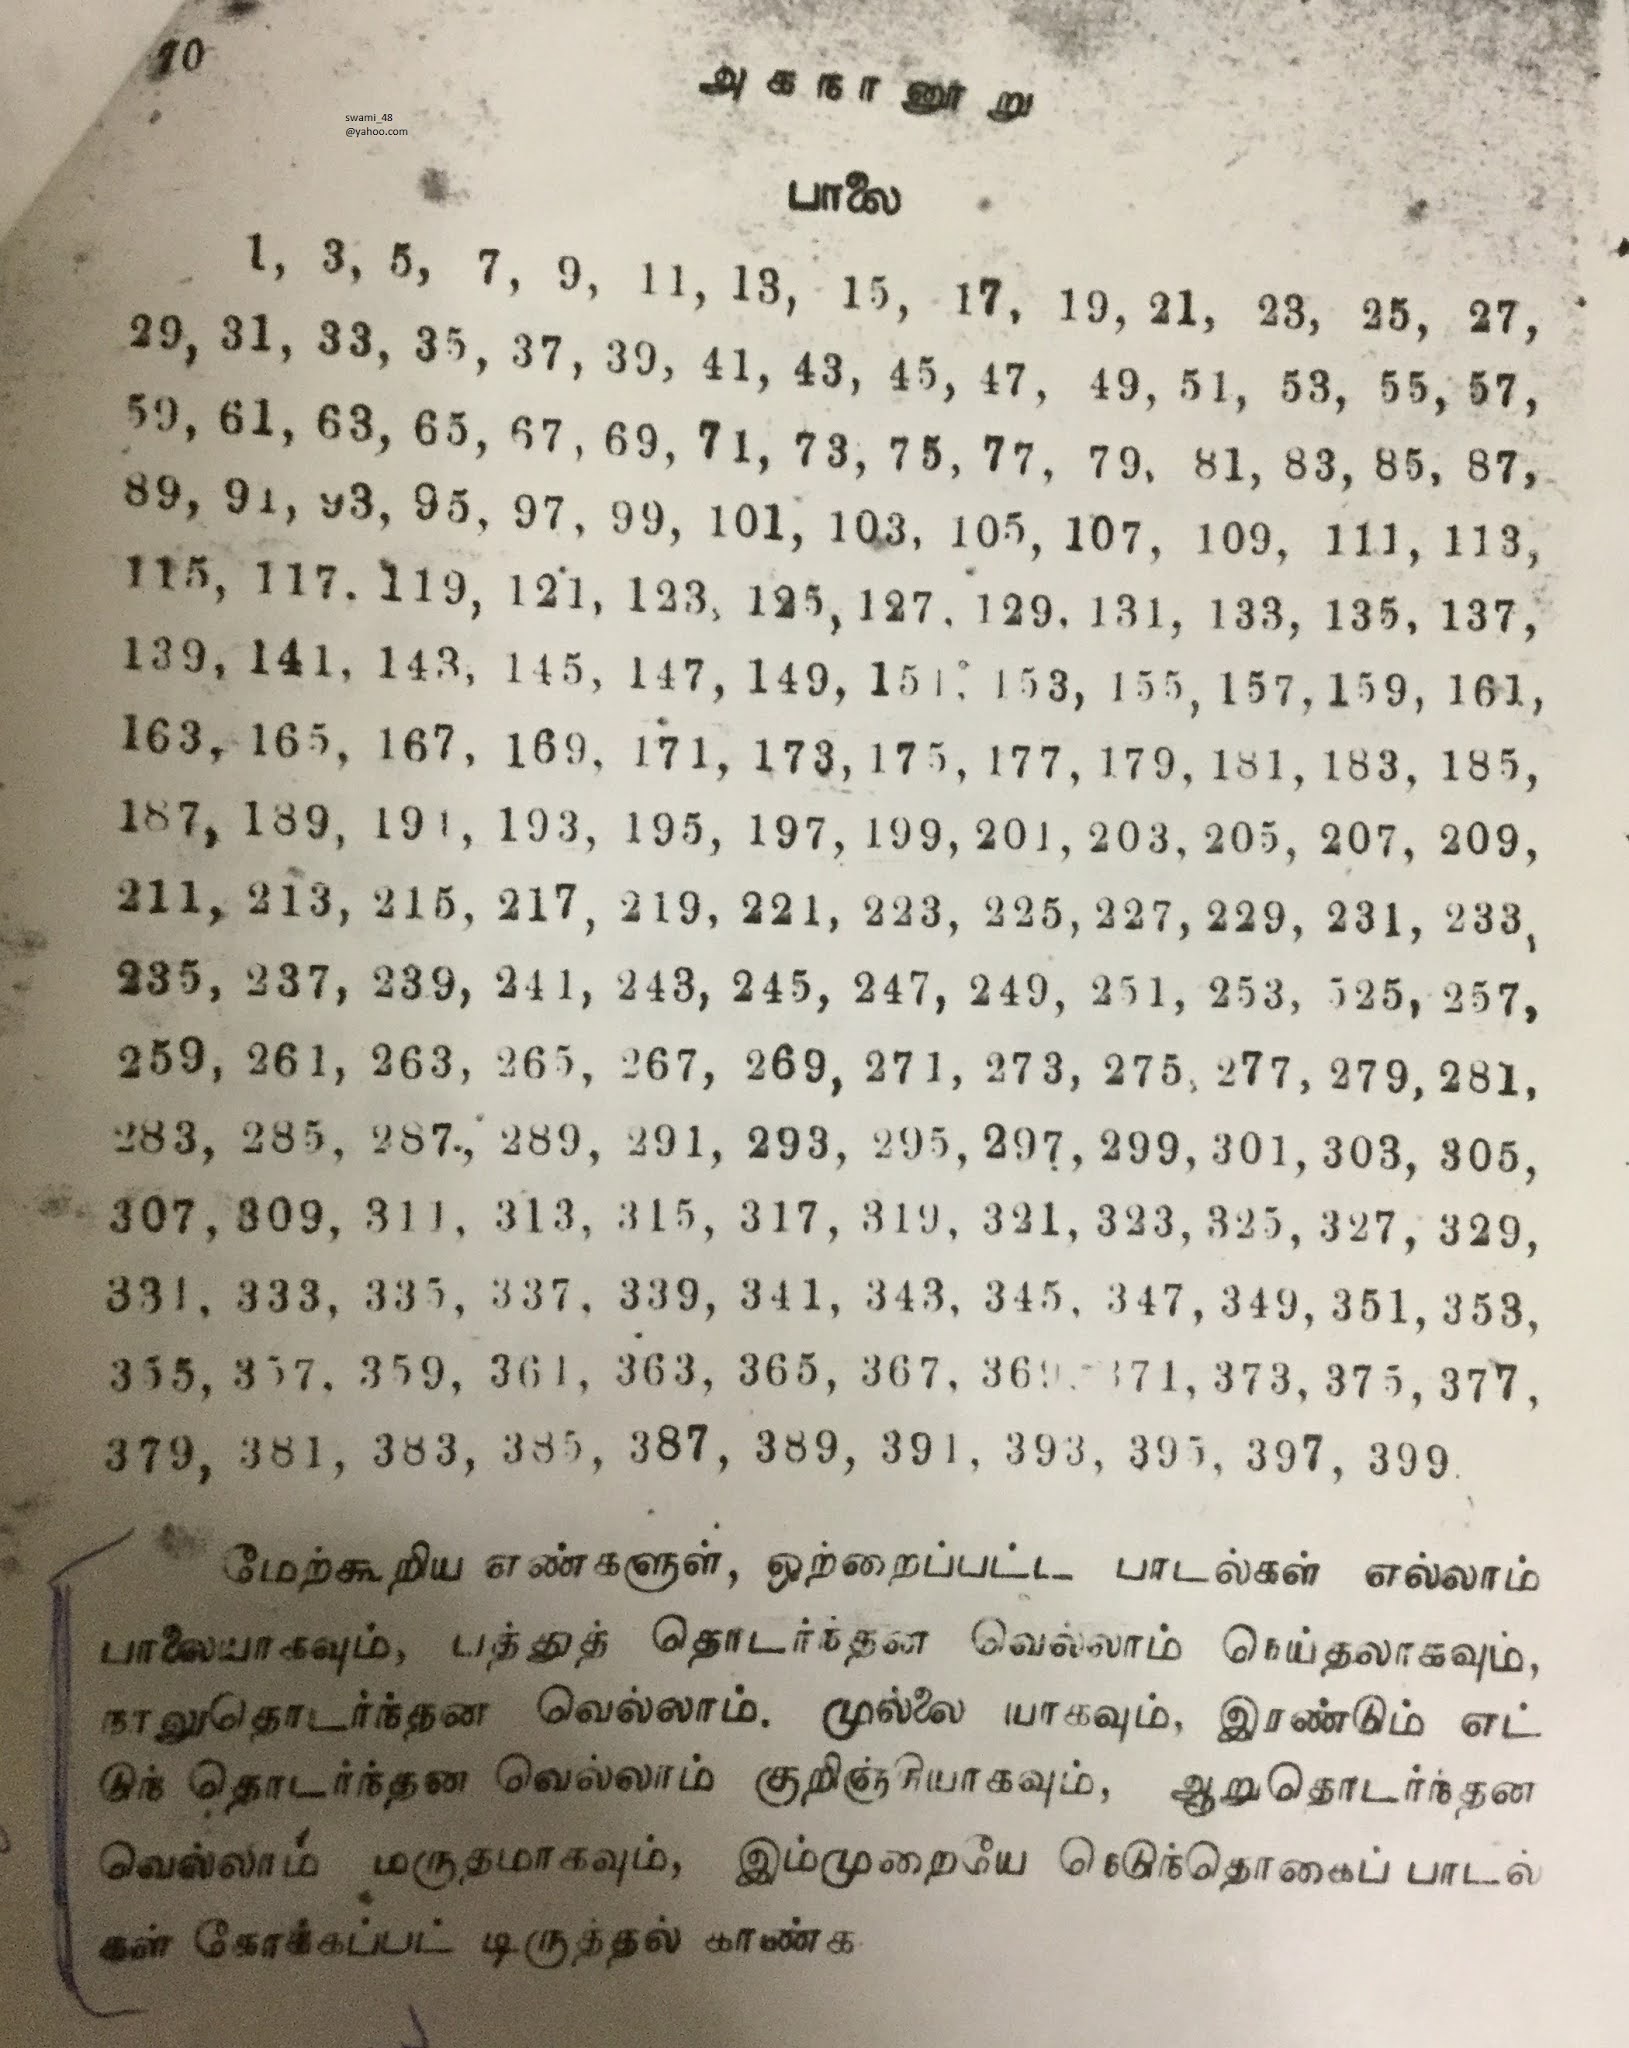 10
அகநானூறு
swami_48
@yahoo.com
பாலை
1, 3, 5, 7, 9, 11, 13, 15, 17, 19, 21, 23, 25, 27,
29, 31, 33, 35, 37, 39, 41, 43, 45, 47, 49, 51, 53, 55, 57,
59, 61, 63, 65, 67, 69, 71, 73, 75, 77, 79, 81, 83, 85, 87,
89, 91, 93, 95, 97, 99, 101, 103, 105, 107, 109, 111, 113,
115, 117. 119, 121, 123, 125, 127, 129, 131, 133, 135, 137,
139, 141, 143, 145, 147, 149, 151, 153, 155, 157, 159, 161,
163, 165, 167, 169, 171, 173, 175, 177, 179, 181, 183, 185,
187, 189, 191, 193, 195, 197, 199, 201, 203, 205, 207, 209,
211, 213, 215, 217, 219, 221, 223, 225, 227, 229, 231, 233,
235, 237, 239, 241, 243, 245, 247, 249, 251, 253, 525, 257,
259, 261, 263, 265, 267, 269, 271, 273, 275, 277, 279, 281,
283, 285, 287, 289, 291, 293, 295, 297, 299, 301, 303, 305,
307, 309, 311, 313, 315, 317, 319, 321, 323, 325, 327, 329,
331, 333, 335, 337, 339, 341, 343, 345, 347, 349, 351, 353,
355, 357, 359, 361, 363, 365, 367, 369, 371, 373, 375, 377,
379, 381, 383, 385, 387, 389, 391, 393, 395, 397, 399.
மேற்கூறிய எண்களுள், ஒற்றைப்பட்ட பாடல்கள் எல்லாம்
பாலையாகவும், பத்துத் தொடர்ந்தன வெல்லாம் நெய்தலாகவும்,
நாலுதொடர்ந்தன வெல்லாம். முல்லை யாகவும், இரண்டும் எட்
டுந் தொடர்ந்தன வெல்லாம் குறிஞ்சியாகவும், ஆறுதொடர்ந்தன
வெல்லாம் மருதமாகவும், இம்முறையே நெடுந்தொகைப் பாடல்
கள் கோக்கப்பட் டிருத்தல் காண்க